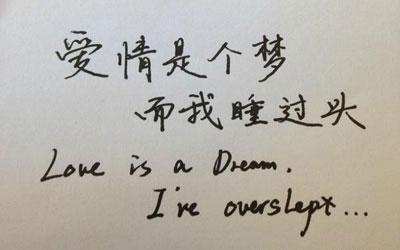 爱情是个梦
而我睡过头
Love is a Dream.
I've overslept...